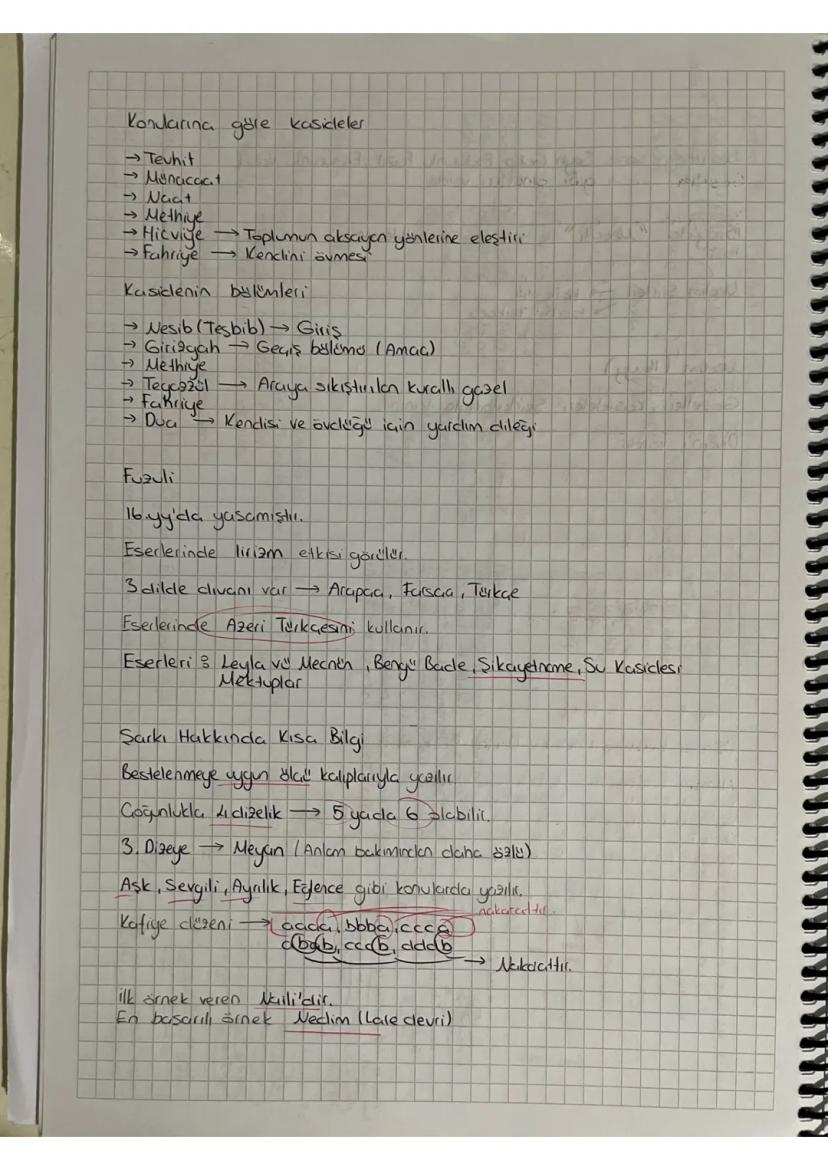 Konularına göre kasideler
→ Tevhit
→ Münacaat
→ Naat
→ Methiye
→ Hicviye → Toplumun aksayan yönlerine eleştiri
→ Fahriye → Kendini övmesi
Kasidenin bölümleri
→ Nesib (Teşbib) → Giriş
→ Girizgah → Geçiş bölümü (Amaç)
→ Methiye
→ Tegazzül → Araya sıkıştırılan kurallı gazel
→ Fahriye
→ Dua → Kendisi ve övdüğü için yardım dileği
Fuzuli
16.yy'da yaşamıştır.
Eserlerinde lirizm etkisi görülür.
3 dilde divanı var → Arapça, Farsça, Türkçe
Eserlerinde Azeri Türkçesini kullanır.
Eserleri : Leyla vü Mecnun, Bengü Bade, Şikayetname, Su Kasidesi
Mektuplar
Şarkı Hakkında Kısa Bilgi
Bestelenmeye uygun ölçü kalıplarıyla yazılır.
Çoğunlukla 4 dizelik → 5 yada 6 olabilir.
3. Dizeye → Meyan (Anlam bakımından daha özlü)
Aşk, Sevgili, Ayrılık, Eğlence gibi konularda yazılır.
nakarattır.
Kafiye düzeni → aada, bbba, ccca
cccb, dddb
→ Nakarattır.
ilk örnek veren Naili'dir.
En başarılı örnek Nedim (Lale devri)